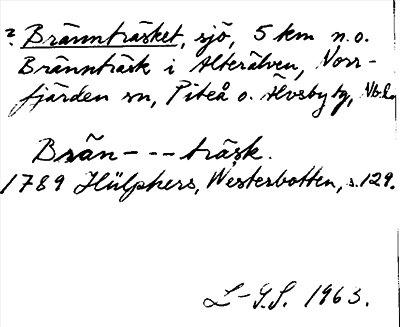 ? Brännträsket, sjö, 5 km n.o.
Brännträsk i Alterälven, Norr-
fjärden sn, Piteå o. Älvsby tg, Nb.l.
Brän---träsk.
1789 Hülphers, Westerbotten, s. 129.
L-G.S. 1963.